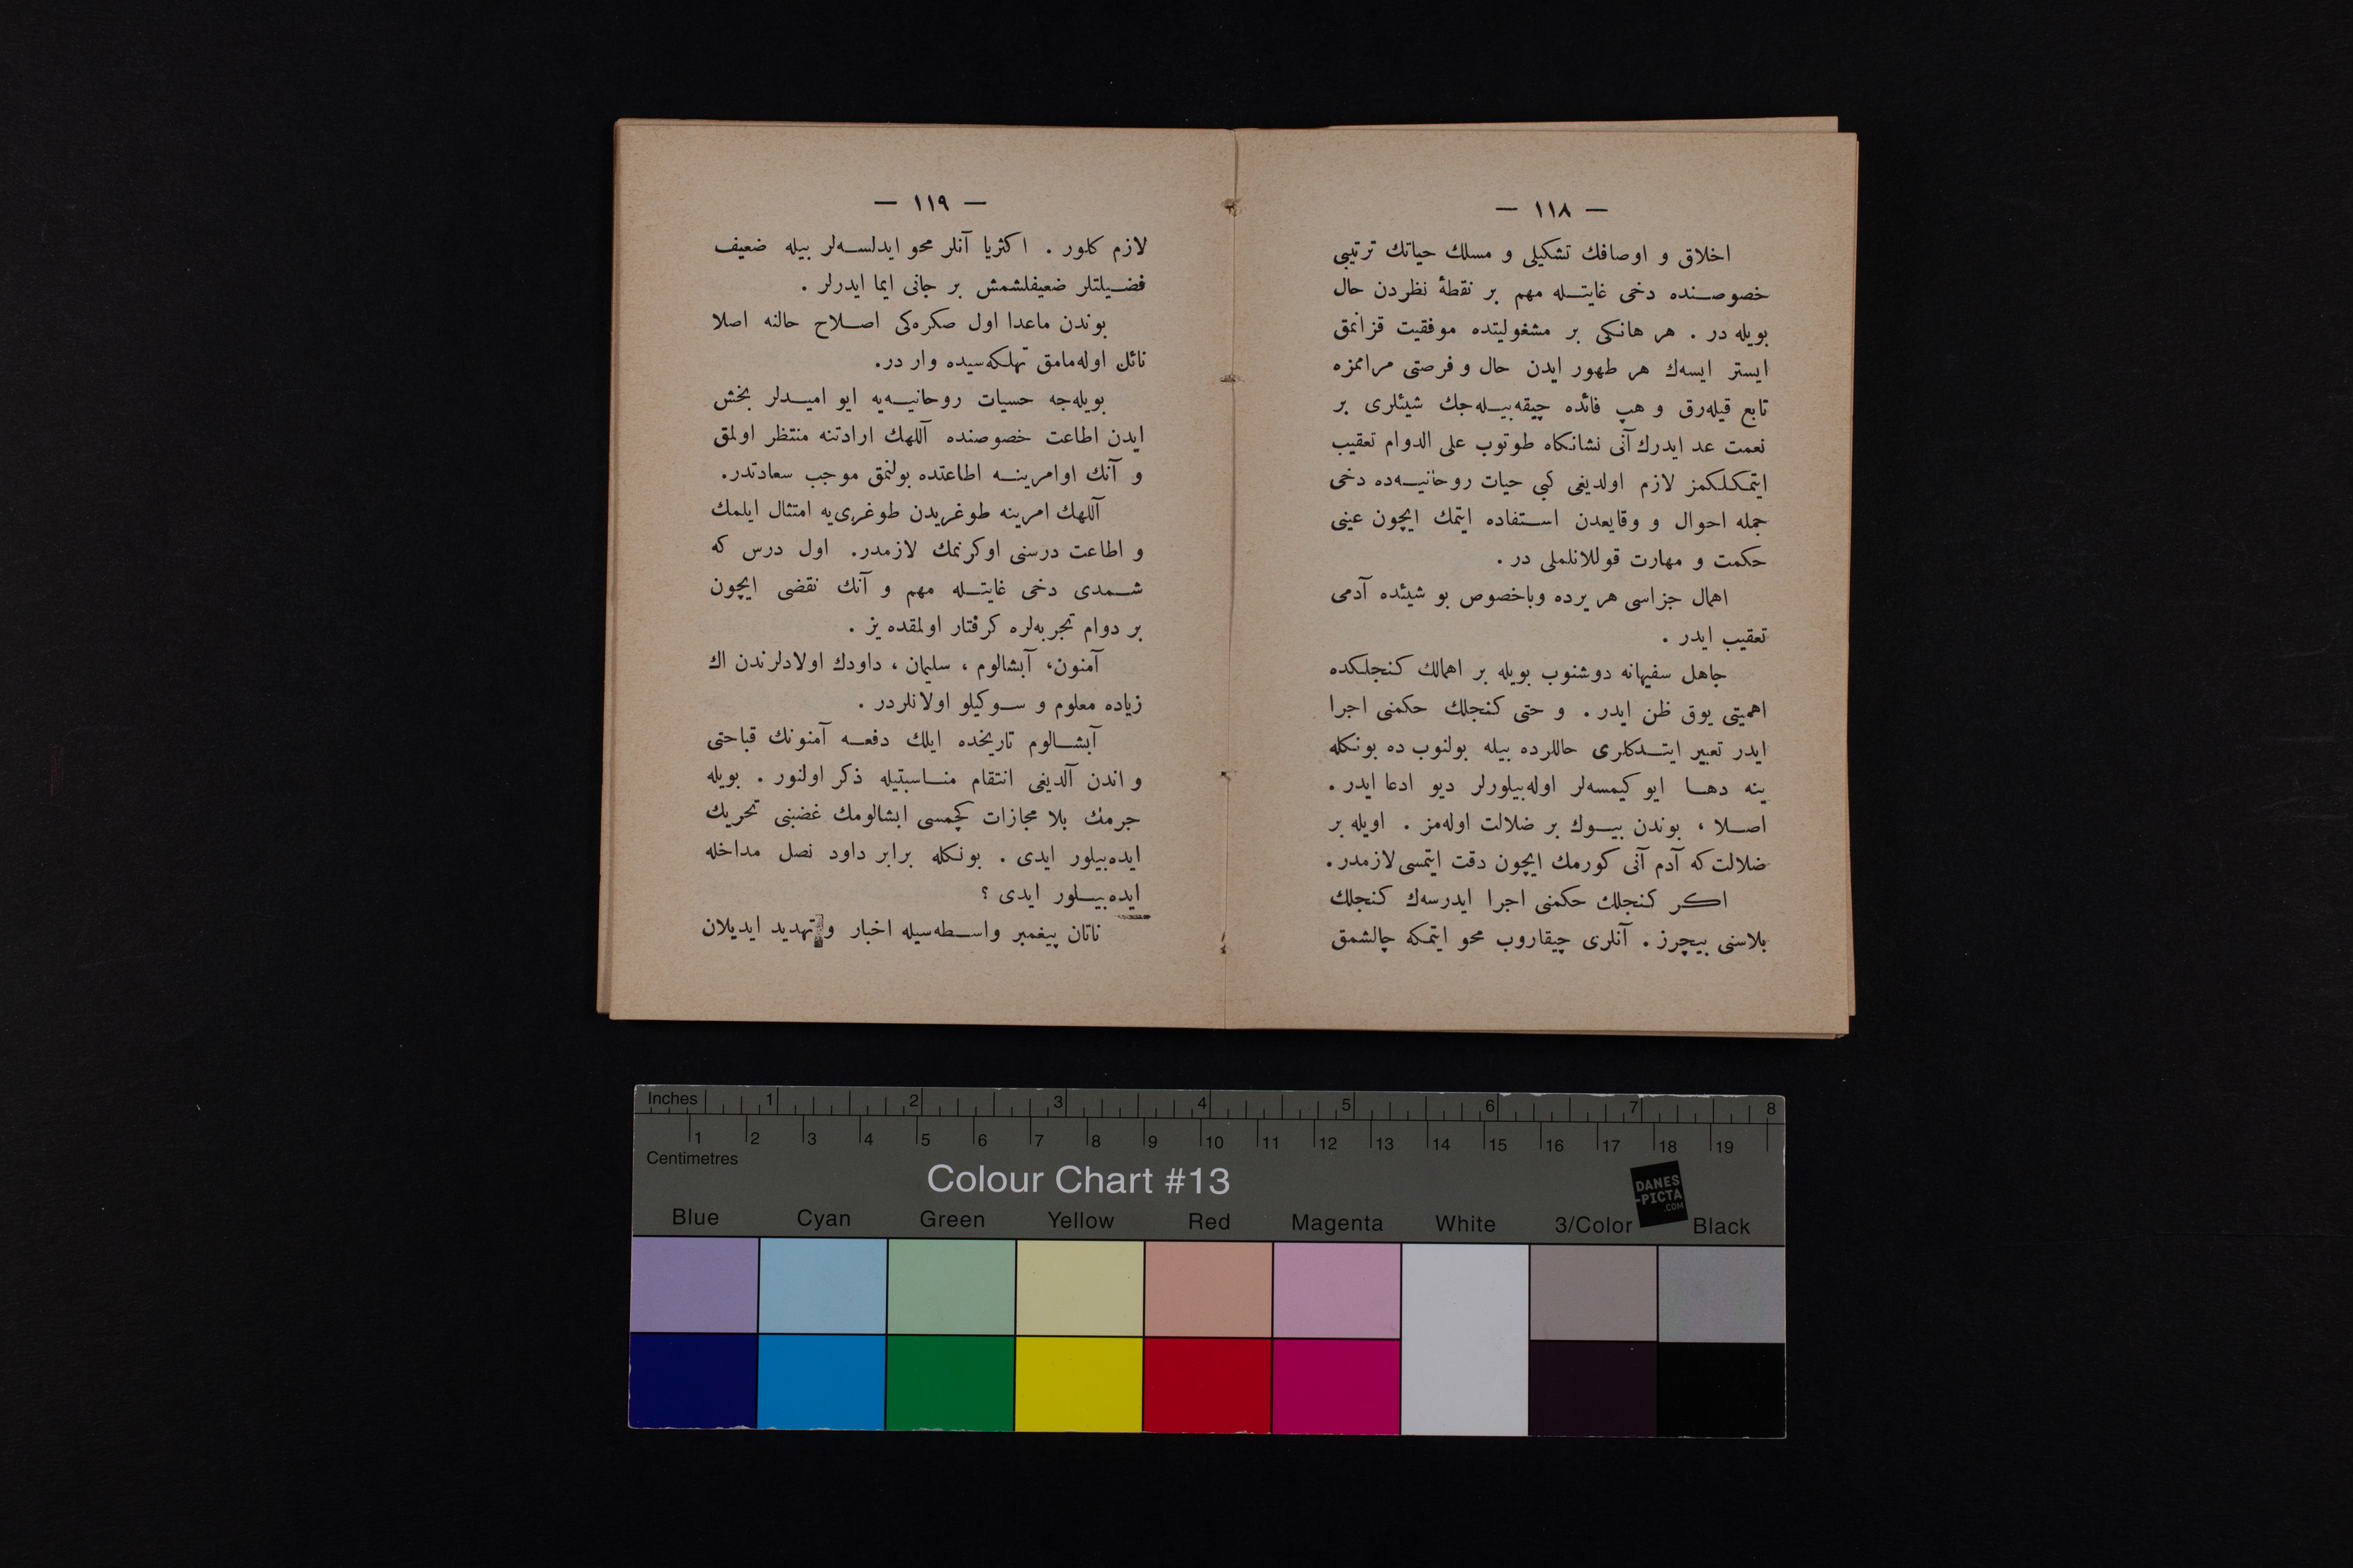 — ١١٨ —
اخلاق و اوصافك تشكیلی و مسلك حیاتك ترتیبی
خصوصنده دخی غایتله مهم بر نقطهٔ نظردن حال
بویله در . هر هانكی بر مشغولیتده موفقیت قزانمق
ایستر ایسه‌ك هر طهور ایدن حال و فرصتی مرامزه
تابع قیله‌رق و هپ فائده چیقه‌بیله‌جك شیئلری بر
نعمت عد ایدرك آنی نشانكاه طوتوب علی الدوام تعقیب
ایتمكلكمز لازم اولدیغی كبی حیات روحانیه‌ده دخی
جمله احوال و وقایعدن استفاده ایتمك ایچون عینی
حكمت و مهارت قوللانلملی در .
اهمال جزاسی هر یرده وباخصوص بو شیئده آدمی
تعقیب ایدر .
جاهل سفیهانه دوشنوب بویله بر اهمالك كنجلكده
اهمیتی یوق ظن ایدر . و حتی كنجلك حكمنی اجرا
ایدر تعبیر ایتدكلری حاللرده بیله بولنوب ده بونكله
ینه دها ایو كیمسه‌لر اوله‌بیلورلر دیو ادعا ایدر .
اصلا ، بوندن بیوك بر ضلالت اوله‌مز . اویله بر
ضلالت كه آدم آنی كورمك ایچون دقت ایتمسی لازمدر .
اكر كنجلك حكمنی اجرا ایدرسه‌ك كنجلك
بلاسنی بیچرز . آنلری چیقاروب محو ایتمكه چالشمق
— ١١٩ —
لازم كلور . اكثریا آنلر محو ایدلسه‌لر بیله ضعیف
فضیلتلر ضعیفلشمش بر جانی ایما ایدرلر .
بوندن ماعدا اول صكره‌كی اصلاح حالنه اصلا
نائل اوله‌مامق تهلكه‌سیده وار در.
بویله‌جه حسیات روحانیه‌یه ایو امیدلر بخش
ایدن اطاعت خصوصنده آللهك ارادتنه منتظر اولمق
و آنك اوامرینه اطاعتده بولنمق موجب سعادتدر.
آللهك امرینه طوغریدن طوغری‌یه امتثال ایلمك
و اطاعت درسنی اوكرنمك لازمدر. اول درس كه
شمدی دخی غایتله مهم و آنك نقضی ایچون
بر دوام تجربه‌لره كرفتار اولمقده یز .
آمنون، آبشالوم ، سلیمان ، داودك اولادلرندن اك
زیاده معلوم و سوكیلو اولانلردر .
آبشالوم تاریخده ایلك دفعه آمنونك قباحتی
و اندن آلدیغی انتقام مناسبتیله ذكر اولنور . بویله
جرمك بلا مجازات كچمسی ابشالومك غضبنی تحریك
ایده‌بیلور ایدی . بونكله برابر داود نصل مداخله
ایده‌بیلور ایدی ؟
ناتان پیغمبر واسطه‌سیله اخبار و تهدید ایدیلان
Inches 1 2 3 4 5 6 7 8
1 2 3 4 5 6 7 8 9 10 11 12 13 14 15 16 17 18 19
Centimetres
Colour Chart #13
DANES
-PICTA
.COM
Blue Cyan Green Yellow Red Magenta White 3/Color Black